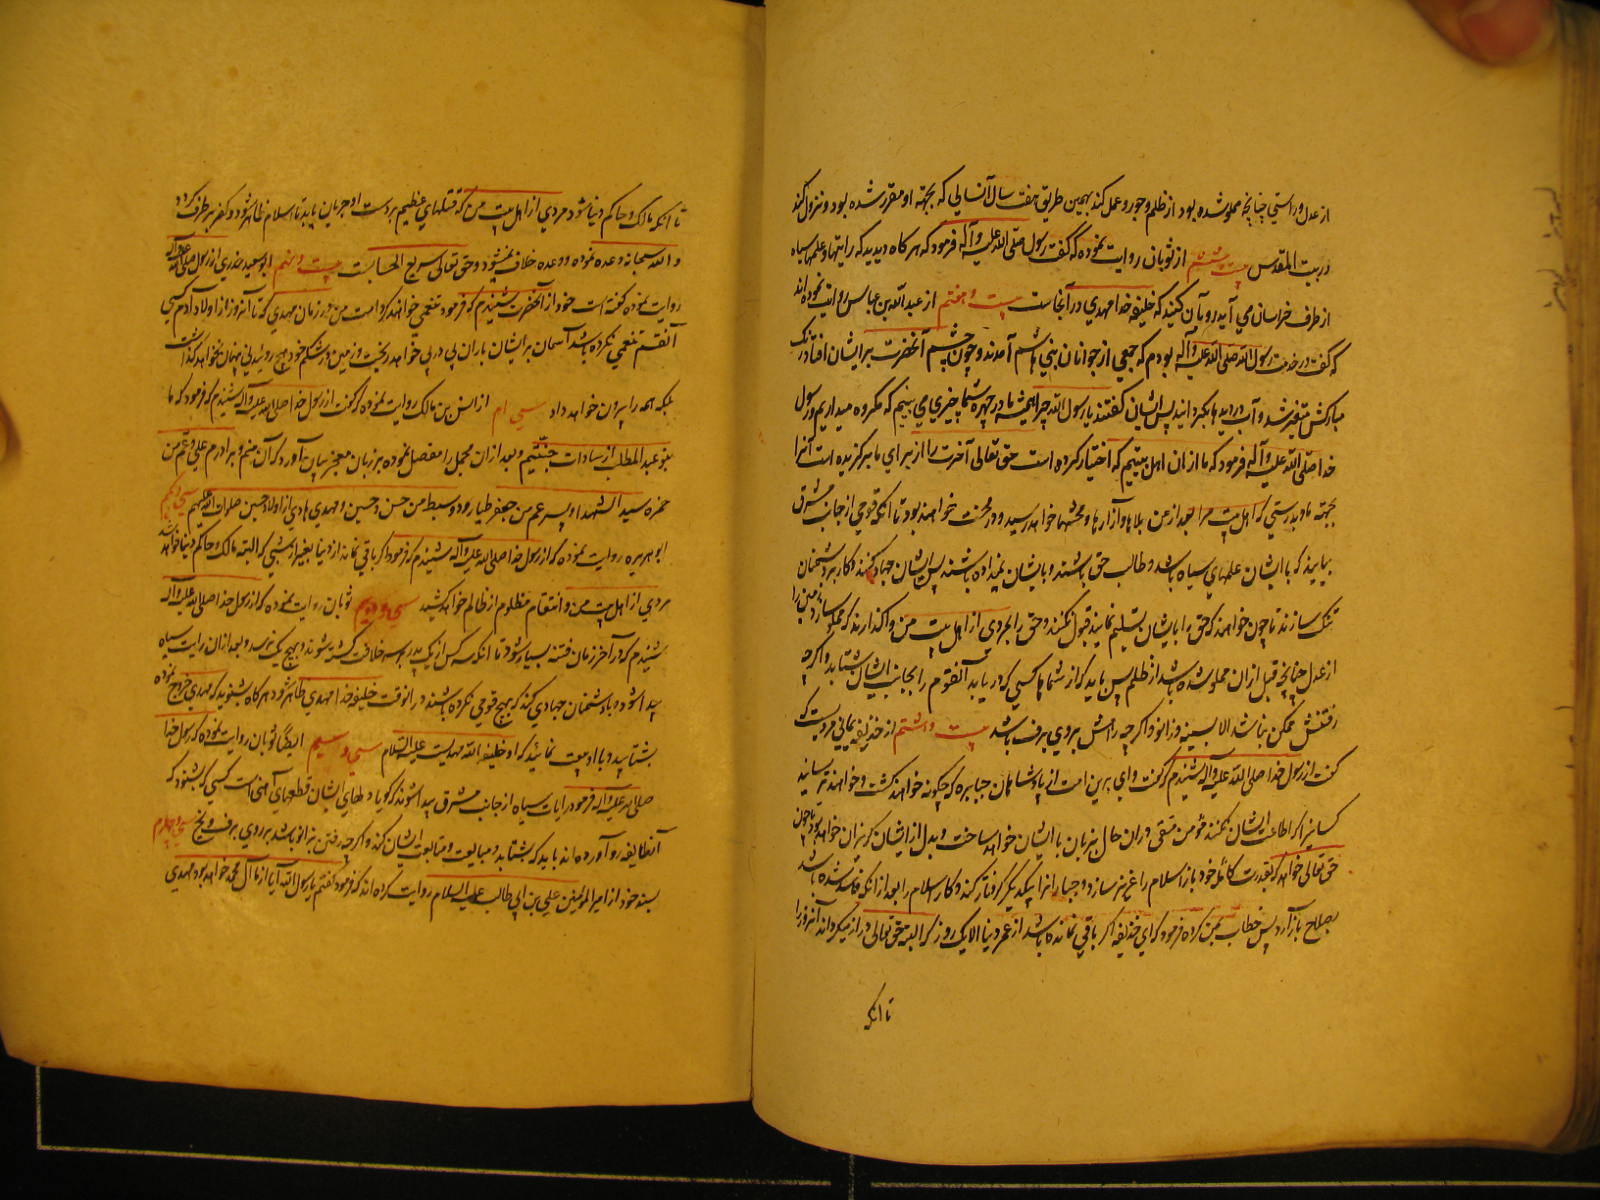 از عدل و راستی چنانچه مملو شده بود از ظلم و جور و عمل کند بهمین طریق هفت سال آنسالی که بجهته او مقرر شده بود و نزول کند
در بیت المقدس بیست و ششم از ثوبان روایت نموده که گفت رسول صلی الله علیه و آله فرمود که هر کاه دیدید که رایتها و علمهای سیاه
از طرف خراسان می آید رو بآن کنید که خلیفه خدا مهدی در آنجاست بیست و هفتم از عبد الله بن عباس روایت نموده اند
که گفت در خدمت رسول الله صلی الله علیه و آله بودم که جمعی از جوانان بنی هاشم آمدند و چون چشم آنحضرت بر ایشان افتاد رنک
مبارکش متغیر شد و آب در دیدها بکردانید پس ایشان گفتند یا رسول الله چرا همیشه ما در چهره شما چیزی می بینیم که مکروه میداریم رسول
خدا صلی الله علیه و آله فرمود که ما از ان اهل بیتیم که اختیار کرده است حق تعالی آخرت را از برای ما برکزیده است آنرا
بجهته ما بدرستی که اهل بیت مرا بعد از من بلاها و آزارها و محنتها خواهد رسید و در محنت خواهند بود تا آنکه قومی از جانب مشرق
بیایند که با ایشان علمهای سیاه باشد و طالب حق باشند و بایشان نمیداده باشند پس ایشان جهاد کنند و کار بر دشمنان
تنک سازند تا چون خواهند که حق را بایشان تسلیم نمایند قبول نکنند و حق را بمردی از اهل بیت من واکذارند که مملو سازد زمین را
از عدل چنانچه قبل از ان مملو شده باشد از ظلم پس باید که از شما ها کسی که دریابد آنقوم را بجانب ایشان بشتابد و اکر چه
رفتنش ممکن نباشد الا بسینه و زانو و اکر چه راهش بر روی برف باشد بیست و هشتم از حذیفه یمانی مرویست که
گفت از رسول خدا صلی الله علیه و آله شنیدم که گفت وای بر این امت از پادشاهان جبابره که چکونه خواهند کشت و خواهند ترسانید
کسانی را که اطاعت ایشان نکنند مؤمن متقی در ان حال بزبان با ایشان خواهد ساخت و بدل از ایشان کریزان خواهد بود چون
حق تعالی خواهد که بقدرت کامله خود باز اسلام را عزیز سازد و جباران را بیکدیگر کرفتار کند و کار اسلام را بعد از انکه فاسد شده باشد
بصلاح باز آرد پس خطاب بمن کرده فرمود که ای حذیفه اکر باقی نمانده باشد از عمر دنیا الا یک روز که البته حق تعالی دراز میکرداند آنروز را
تا انکه
تا انکه مالک و حاکم دنیا شود مردی از اهل بیت من که قتلهای عظیم بر دست او جریان یابد تا اسلام ظاهر شود و کفر بر طرف کردد
و الله سبحانه وعده نموده و وعده خلاف نمیشود و حق تعالی سریع الحسابست بیست و نهم ابو سعید خدری از رسول صلی الله علیه و آله
روایت نموده گفته است خود از آنحضرت شنیدم که فرمود تنعمی خواهند کرد امت من در زمان مهدی که تا آنروز از اولاد آدم کسی
آنقسم تنعمی نکرده باشد آسمان بر ایشان باران پی در پی خواهد ریخت و زمین در شکم خود هیچ روئیدنی پنهان نخواهد کذاشت
بلکه همه را بیرون خواهد داد سی ام از انس بن مالک روایت نموده که گفت از رسول خدا صلی الله علیه و آله شنیدم که فرمود که ما
بنو عبد المطلب از سادات جنتیم و بعد از ان مجمل را مفصل نموده بر زبان معجز بیان آورد که آن منم و برادرم علی و عم من
حمزه سید الشهدا و پسر عم من جعفر طیار و دو سبط من حسن و حسین و مهدی هادی از اولاد حسین صلوات الله علیهم سی و یکم
ابو هریره روایت نموده که از رسول خدا صلی الله علیه و آله شنیدم که فرمود اکر باقی نماند از دنیا بغیر از شبی که البته مالک و حاکم دنیا خواهد شد
مردی از اهل بیت من و انتقام مظلوم از ظالم خواهد کشید سی و دویم ثوبان روایت نموده که از رسول خدا صلی الله علیه و آله
شنیدم که در آخر زمان فتنه بسیار شود تا انکه سه کس از یک پدر بر سر خلافت کشته شوند و بهیچ یک نرسد و بعد از ان رایت سیاه
پیدا شود و با دشمنان جهادی کند که هیچ قومی نکرده باشند در انوقت خلیفه خدا مهدی ظاهر شود هر کاه بشنوید که مهدی خروج نموده
بشتابید و با او بیعت نمائید که او خلیفة الله مهدیست علیه السلام سی و سیم ایضا ثوبان روایت نموده که رسول خدا
صلی الله علیه و آله فرمود رایات سیاه از جانب مشرق پیدا شوند که کویا دلهای ایشان قطعهای آهن است کسی که بشنود که
آنطایفه رو آورده اند باید که بشتابد و مبایعت و متابعت ایشان کند و اکر چه رفتن بزانو باشد بر روی برف و یخ سی و چهارم
بسند خود از امیر المؤمنین علی بن ابی طالب علیه السلام روایت کرده اند که فرمود گفتم یا رسول الله آیا از ما آل محمد خواهد بود مهدی